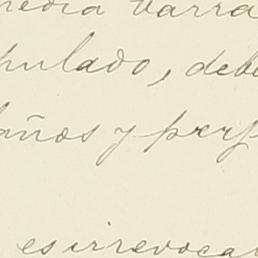 media varra
pulado, debe
años y perj
es irrevoca